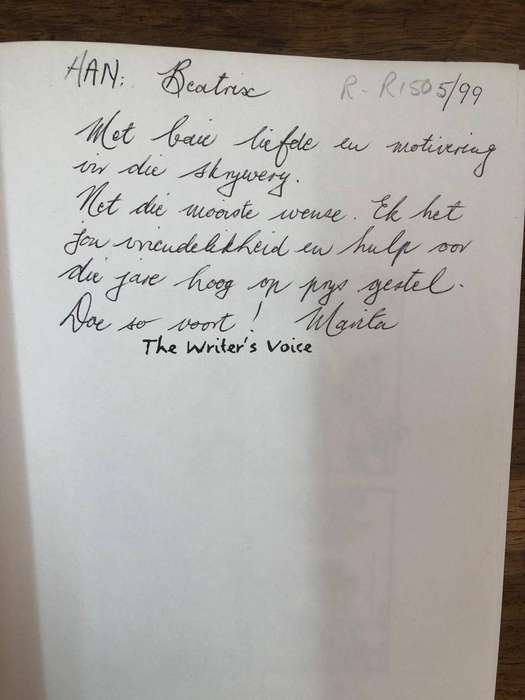 HAN: Beatrix R - R150 5/99
Met baie liefde en motivering
vir die skrywery.
Net die mooiste wense. Ek het
jou vriendelikheid en hulp oor
die jare hoog op prys gestel.
Doe so voort! Marita
The Writer's Voice